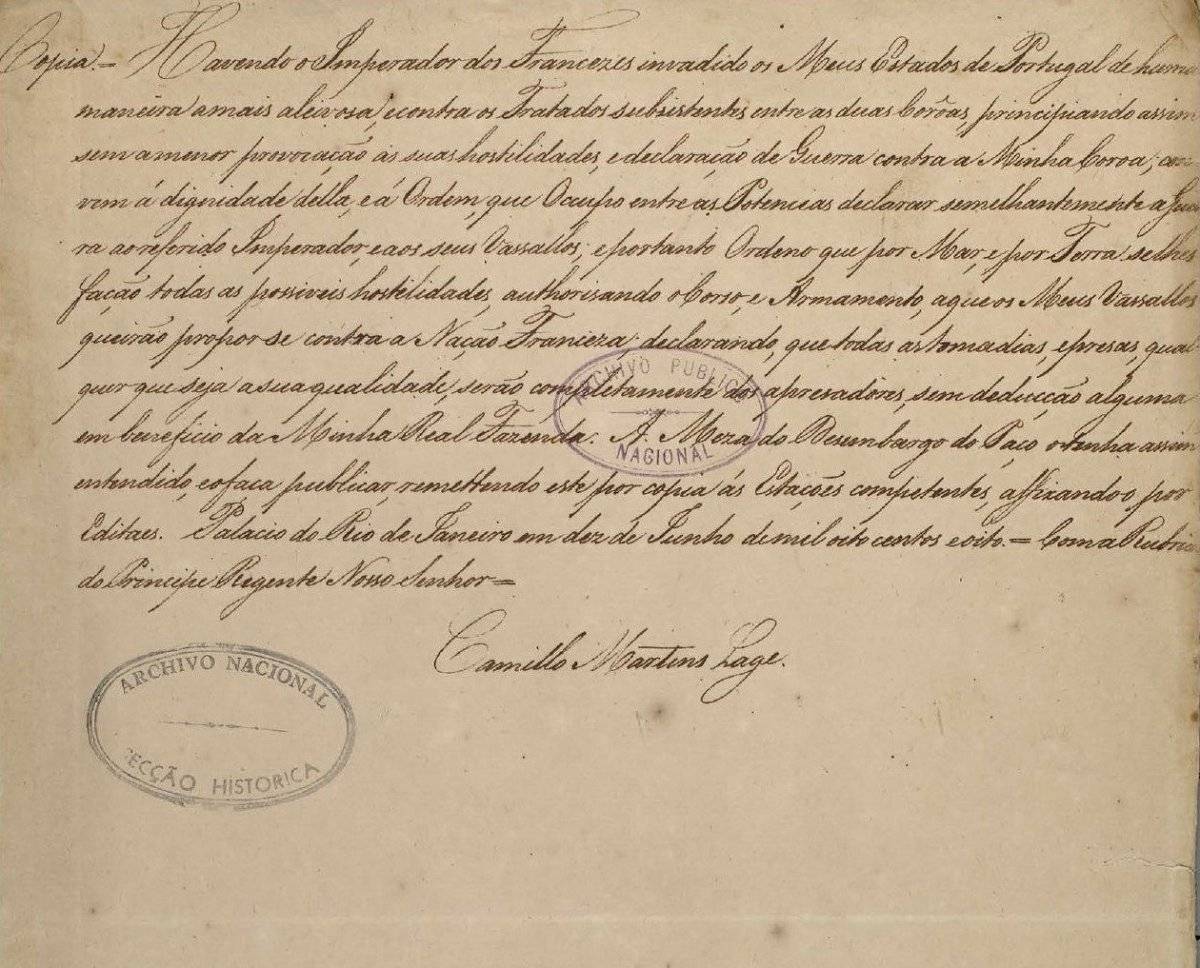 Copia.= Havendo o Imperador dos Francezes invadido os Meus Estados de Portugal de huma
maneira a mais aleivosa, e contra os Tratados subsistentes entre as duas Corôas, principiando assim
sem a menor provocação as suas hostilidades, e declaração de Guerra contra a Minha Coroa; con-
vem á dignidade della, e á Ordem, que Occupo entre as Potencias declarar semelhantemente a Guer-
ra ao referido Imperador, e aos seus Vassallos; e portanto Ordeno que por Mar, e por Terra se lhes
fação todas as possiveis hostilidades, authorisando o Corso, e Armamento, a que os Meus Vassallos
queirão propor-se contra a Nação Franceza; declarando, que todas as tomadias, e presas, qual-
quer que seja a sua qualidade, serão completamente dos apresadores, sem deducção alguma
em beneficio da Minha Real Fazenda. A Meza do Desembargo do Paço o tenha assim
entendido, e o faca publicar, remettendo este por copia ás Estações competentes, affixando o por
Editaes. Palacio do Rio de Janeiro em dez de Junho de mil oito centos e oito.= Com a Rubrica
do Principe Regente Nosso Senhor=
Camillo Martins Lage.
ARCHIVO PUBLICO
NACIONAL
ARCHIVO NACIONAL
SECÇÃO HISTORICA